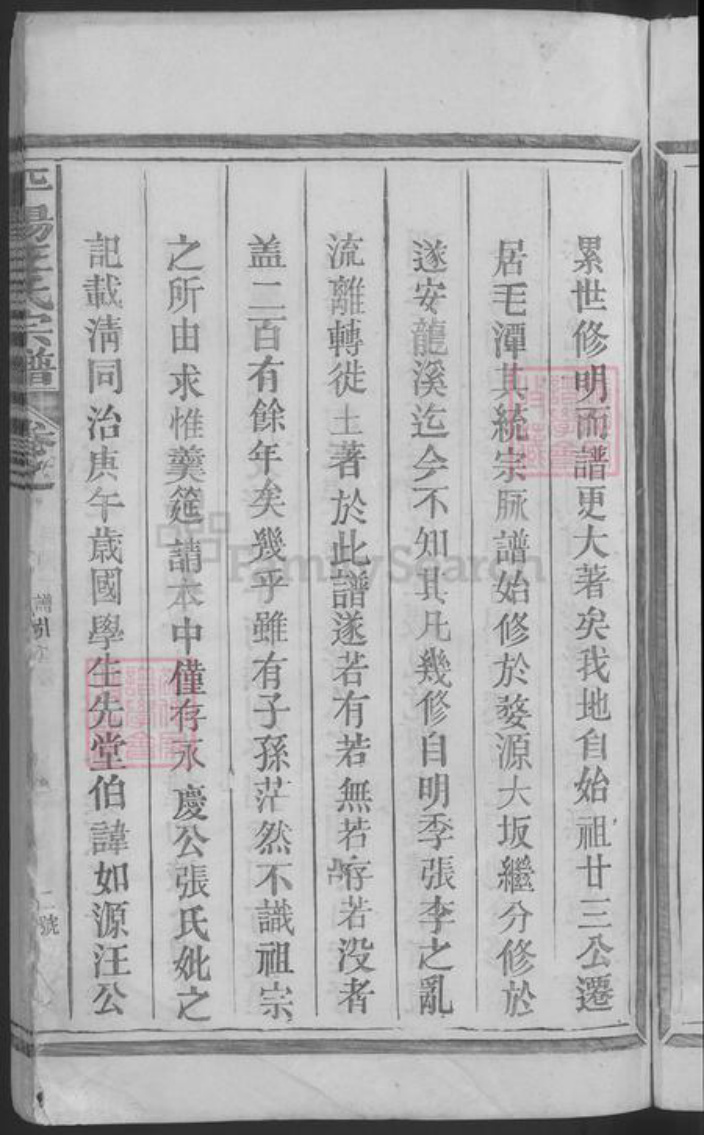 累世修明而譜更大著矣我地自始祖廿三公遷
居毛潭其統宗脈譜始修於婺源大坂繼分修於
遂安龍溪迄今不知其凡幾修自明季張李之亂
流離轉徙土著於此譜遂若有若無若存若没者
盖二百有餘年矣幾乎雖有子孫茫然不識祖宗
之所由求惟羹筵請本中僅存永慶公張氏妣之
記載淸同治庚午歲國學生先堂伯諱如源汪公
平陽汪氏宗譜
卷之
譜引
二號
FamilySearch